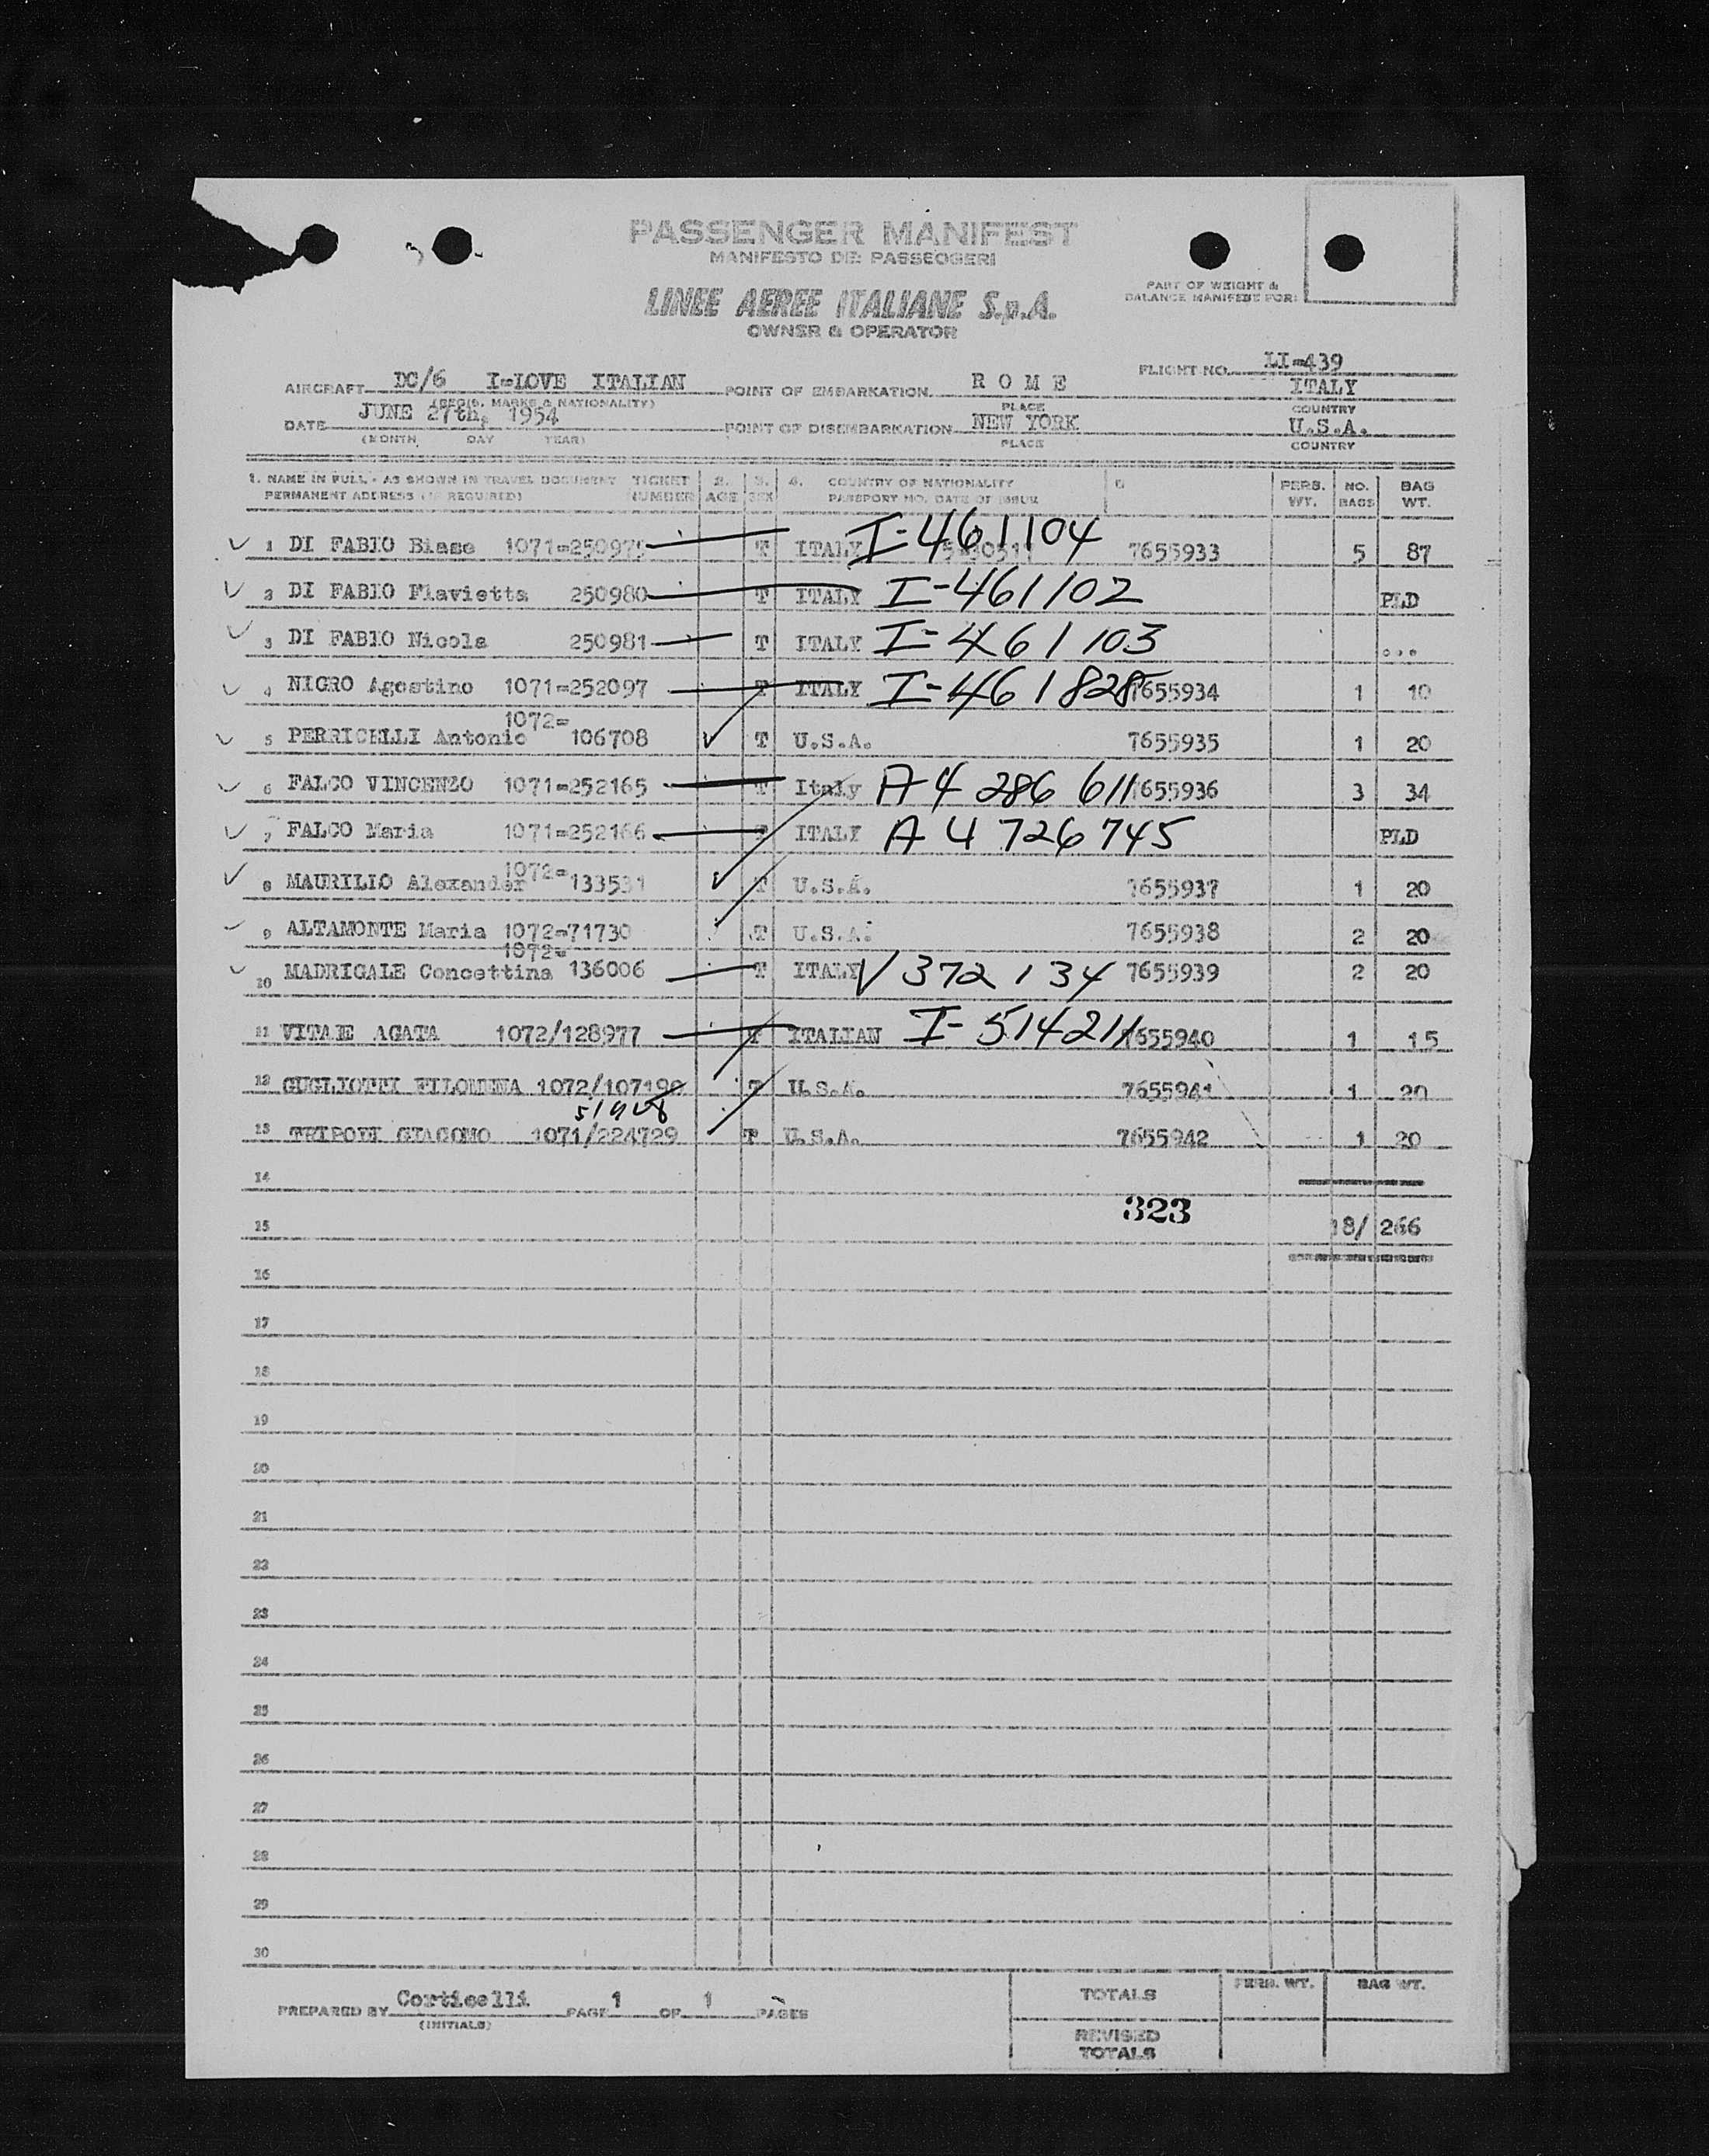 PASSENGER MANIFEST
MANIFESTO DEI PASSEGGERI
LINEE AEREE ITALIANE S.p.A.
OWNER & OPERATOR
PART OF WEIGHT &
BALANCE MANIFEST FOR:
FLIGHT NO. LI=439
AIRCRAFT DC/6 I=LOVE ITALIAN POINT OF EMBARKATION ROME ITALY
(REGIS. MARKS & NATIONALITY) PLACE COUNTRY
DATE JUNE 27th, 1954 POINT OF DISEMBARKATION NEW YORK U.S.A.
(MONTH DAY YEAR) PLACE COUNTRY
1. NAME IN FULL - AS SHOWN IN TRAVEL DOCUMENT TICKET 2. 3. 4. COUNTRY OF NATIONALITY PERS. NO. BAG
PERMANENT ADDRESS (IF REQUIRED) NUMBER AGE SEX PASSPORT NO. DATE OF ISSUE WT. BAGS WT.
1 DI FABIO Biase 1071=250979 T ITALY I-461104 7655933 5 87
2 DI FABIO Flavietta 250980 T ITALY I-461102 PLD
3 DI FABIO Nicola 250981 T ITALY I-461103 ...
4 NIGRO Agostino 1071=252097 T ITALY I-461828 7655934 1 10
5 PERRICELLI Antonio 1072=106708 T U.S.A. 7655935 1 20
6 FALCO VINCENZO 1071=252165 T Italy A4 286 611 7655936 3 34
7 FALCO Maria 1071=252166 T ITALY A 4 726 745 PLD
8 MAURILIO Alexander 1072=133531 T U.S.A. 7655937 1 20
9 ALTAMONTE Maria 1072=71730 T U.S.A. 7655938 2 20
10 MADRIGALE Concettina 1072=136006 T ITALY V 372 134 7655939 2 20
11 VITALE AGATA 1072/128977 T ITALIAN I-514211 7655940 1 15
12 GUGLIOTTI FILOMENA 1072/107190 T U.S.A. 7655941 1 20
51908
13 TRIPODI GIACOMO 1071/224729 T U.S.A. 7655942 1 20
14
323
15 18/ 266
16
17
18
19
20
21
22
23
24
25
26
27
28
29
30
PREPARED BY Corticelli PAGE 1 OF 1 PAGES
(INITIALS)
TOTALS PERS. WT. BAG WT.
REVISED
TOTALS